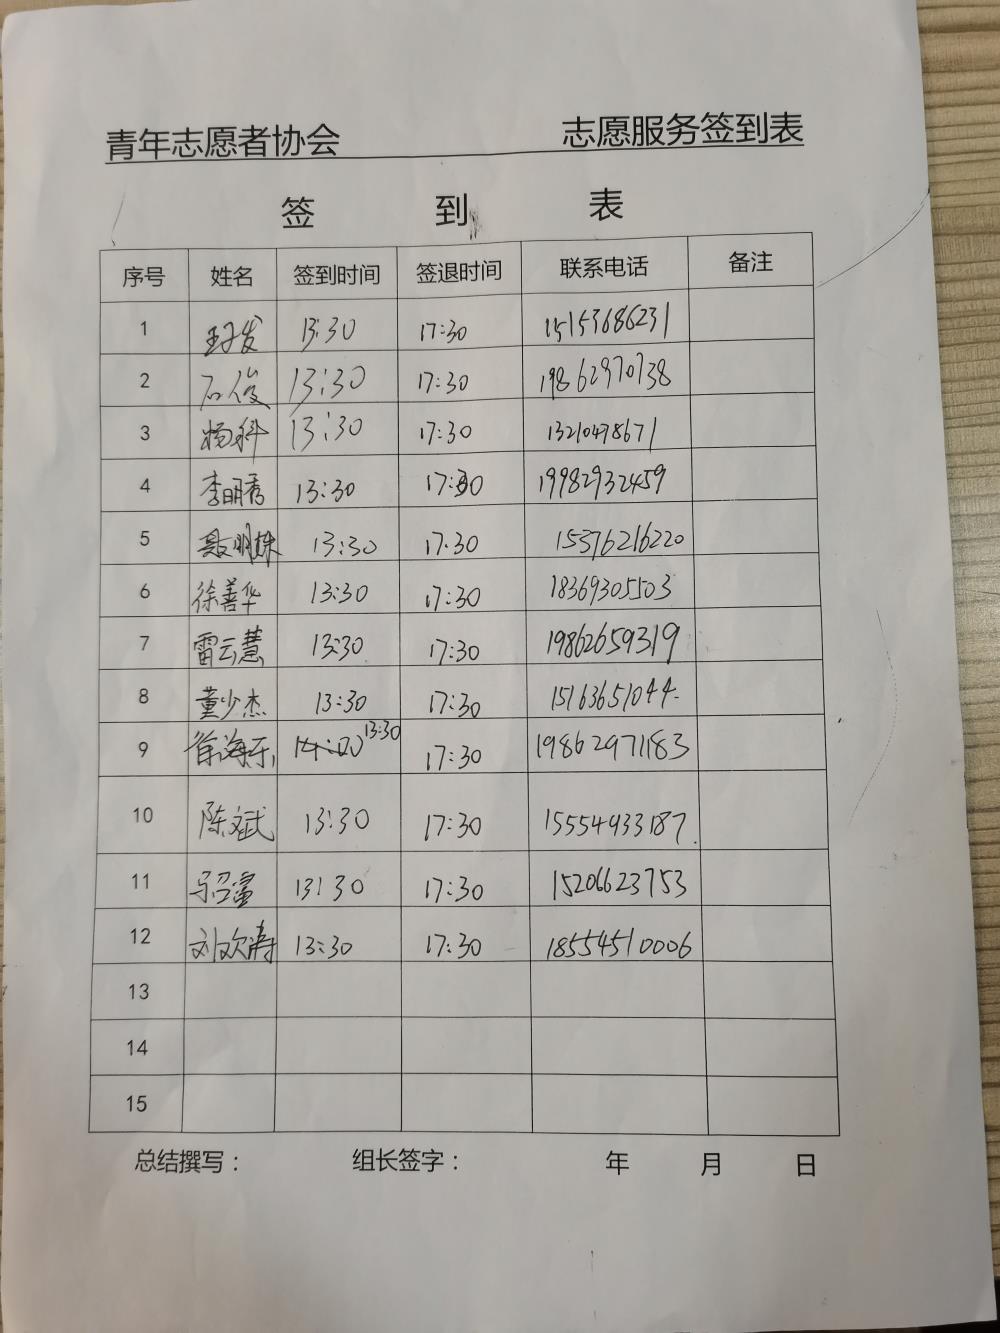 青年志愿者协会 志愿服务签到表
签 到 表
序号 姓名 签到时间 签退时间 联系电话 备注
1 王子发 13:30 17:30 15153686231
2 石俊 13:30 17:30 19862970738
3 杨科 13:30 17:30 13210478671
4 李明秀 13:30 17:30 19982932459
5 聂明栋 13:30 17:30 15376216220
6 徐善华 13:30 17:30 18369305503
7 雷云慧 13:30 17:30 19862659319
8 董少杰 13:30 17:30 15163651044
9 徐海东 13:30 17:30 19862971183
10 陈斌 13:30 17:30 15554933187
11 13:30 17:30 15206623753
12 刘欢涛 13:30 17:30 18554510006
13
14
15
总结撰写： 组长签字： 年 月 日